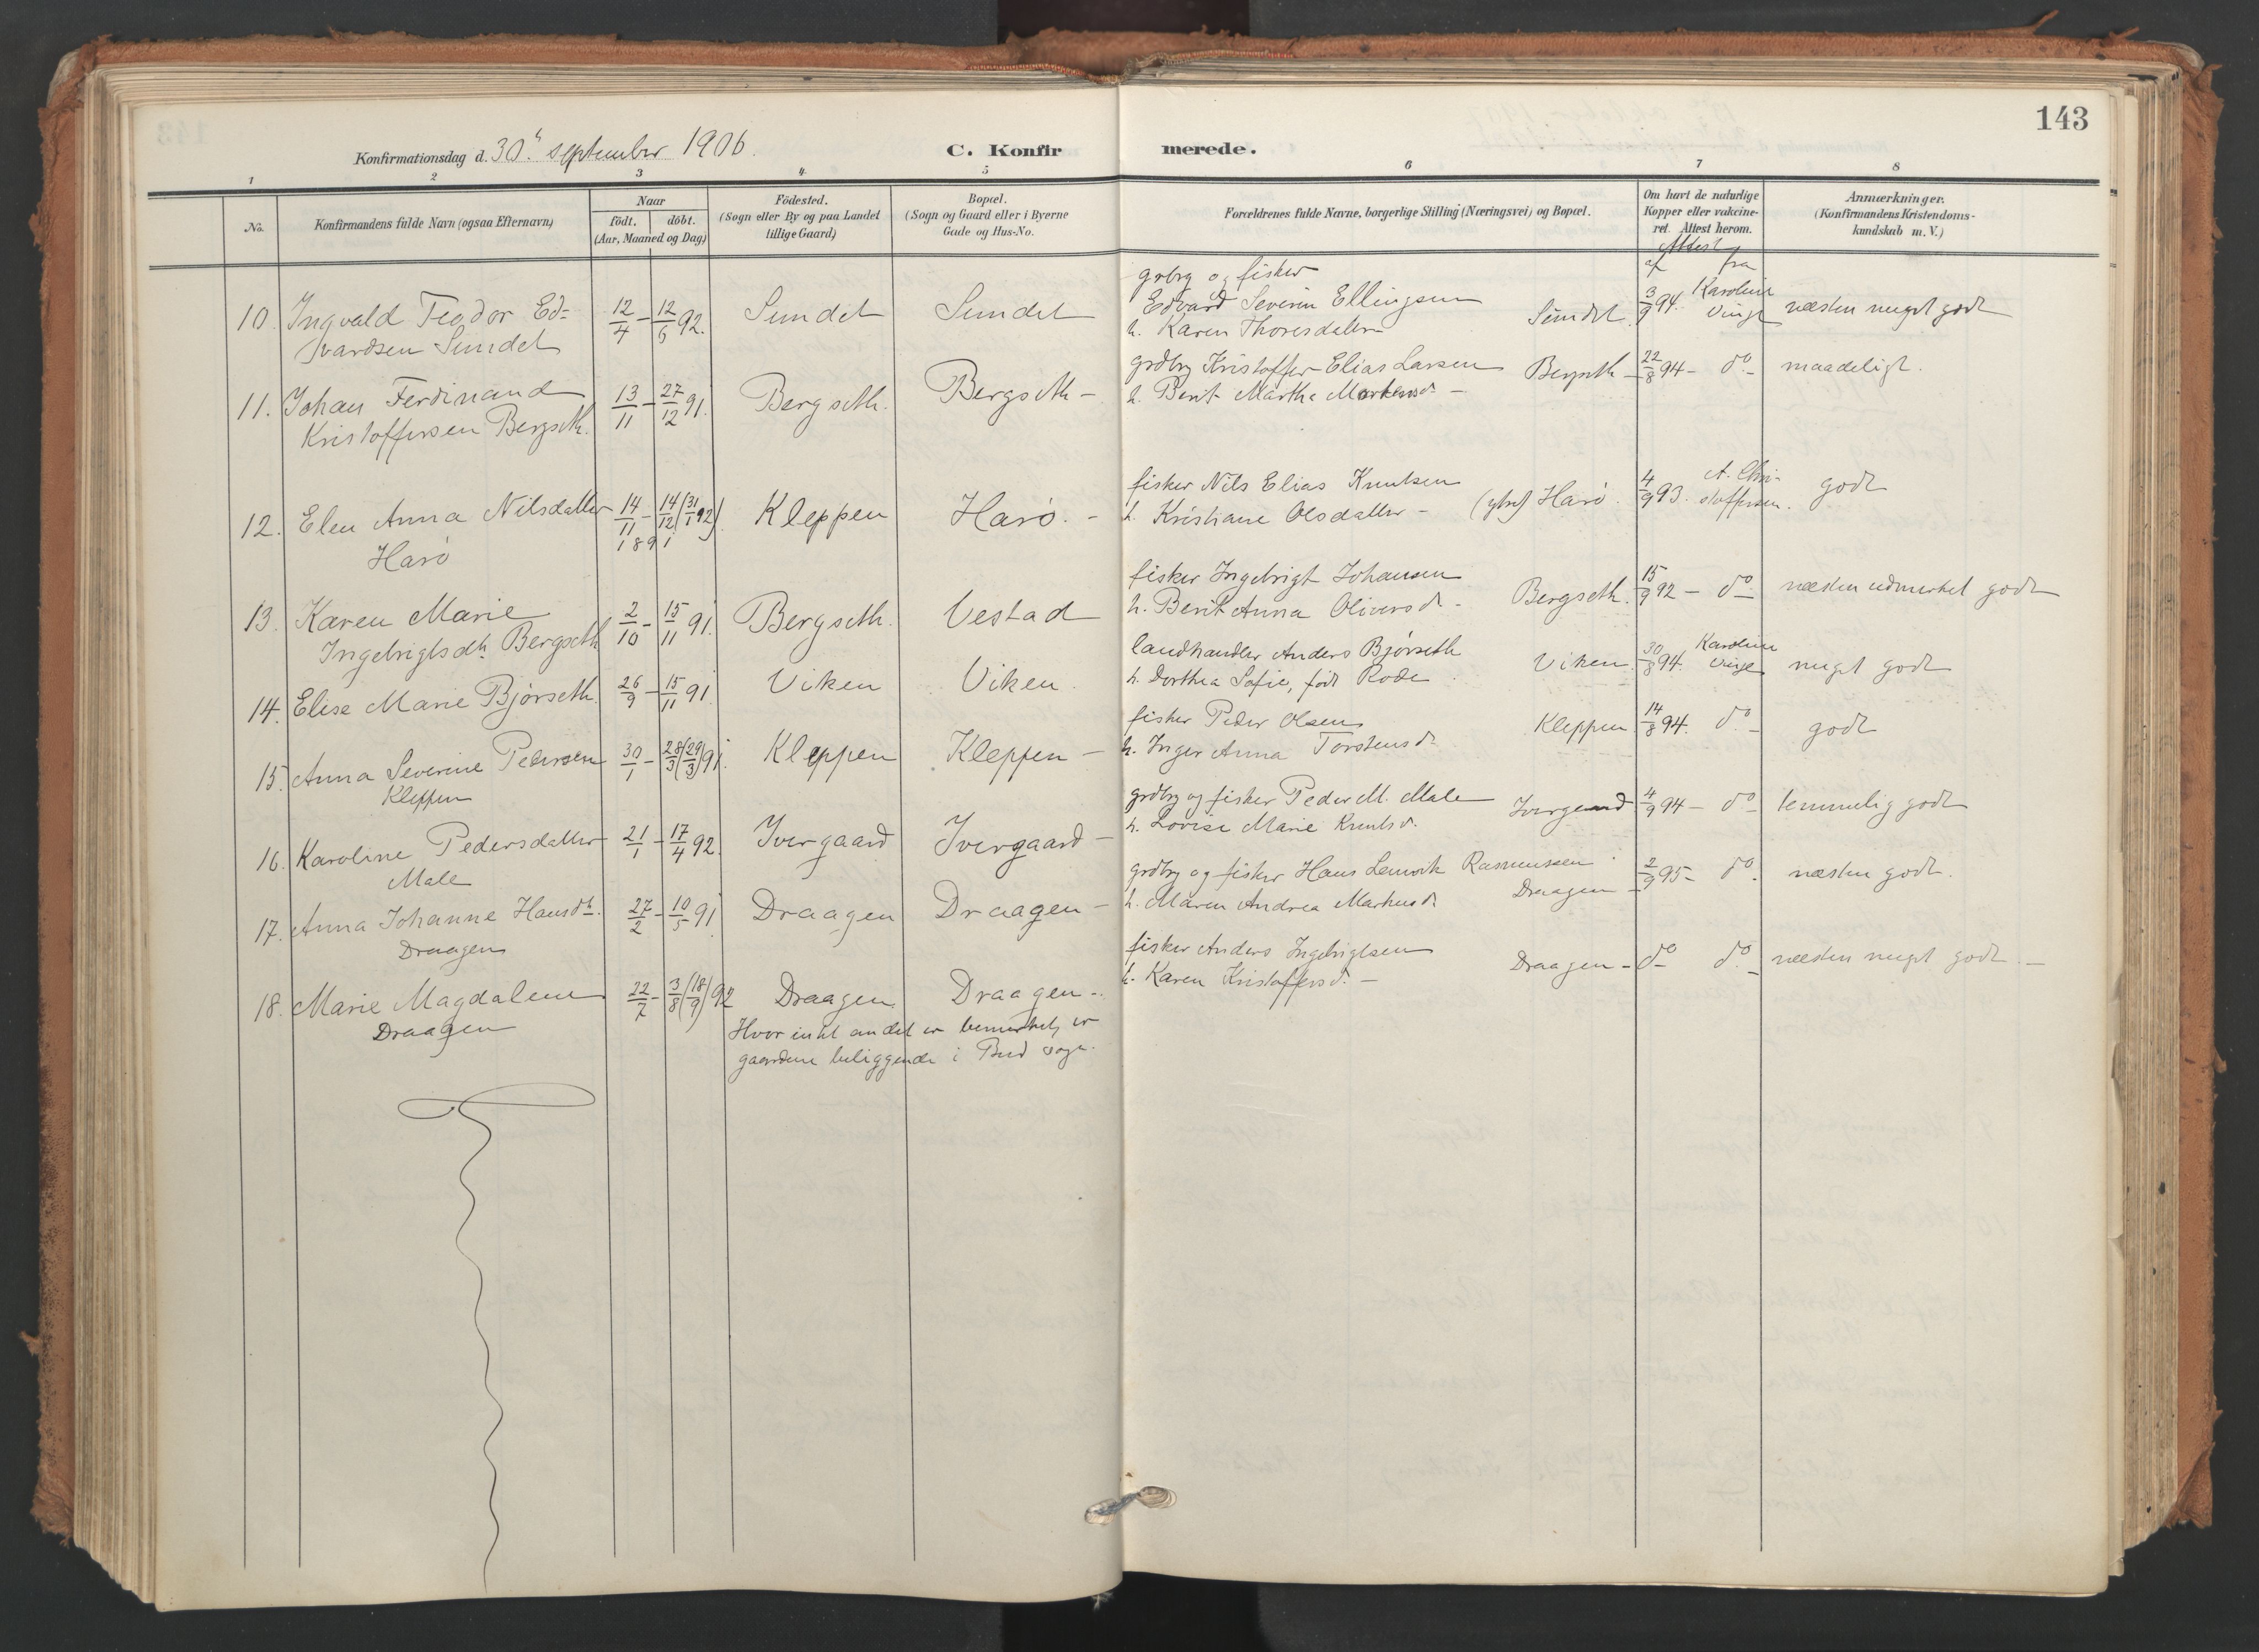 143
Konfirmationsdag d. 30' september 1906.
C. Konfirmerede.
1 2 3 4 5 6 7 8
No.
Konfirmandens fulde Navn (ogsaa Efternavn)
Naar
födt. döbt.
(Aar, Maaned og Dag)
Födested.
(Sogn eller By og paa Landet
tillige Gaard)
Bopæl.
(Sogn og Gaard eller i Byerne
Gade og Hus-No.
Forældrenes fulde Navne, borgerlige Stilling (Næringsvei) og Bopæl.
Om havt de naturlige
Kopper eller vakcine-
ret. Attest herom.
Anmærkninger.
(Konfirmandens Kristendoms-
kundskab m.V.)
Attest
af fra
10. Ingvald Teodor Ed-
vardsen Sundet
12/4 - 12/6 92. Sundet Sundet
grbrg og fisker
Edvard Severin Ellingsen
h. Karen Thoresdatter Sundet
3/9 94. Karoline
Vinge
næsten meget godt
11. Johan Ferdinand
Kristoffersen Bergseth.
13/11 - 27/12 91. Bergseth. Bergseth -
grdbrg Kristoffer Elias Larsen
h. Berit Martha Mortensd. - Bergseth -
22/8 94 - do - maadeligt.
12. Elen Anna Nilsdatter
Harö
14/11 - 14/12 (31/1 92).
1891
Kleppen Harö. -
fisker Nils Elias Knutsen
h. Kristiane Olsdatter - (ytre) Harö.
4/9 93. A. Chri-
stoffersen.
godt
13. Karen Marie
Ingebrigtsdt. Bergseth
2/10 - 15/11 91. Bergseth. Vestad
fisker Ingebrigt Johansen
h. Berit Anna Oliversd. - Bergseth.
15/9 92 - do næsten udmerket godt
14. Elise Marie Björseth.
26/9 - 15/11 91 Viken Viken.
landhandler Anders Björseth
h. Dorthea Sofie, født Rode. Viken.
30/8 94. Karoline
Vinge
meget godt
15. Anna Severine Pedersen
Kleppen
30/1 - 28/3 (29/3) 91. Kleppen Kleppen -
fisker Peder Olsen
h. Inger Anna Torstensd. Kleppen
14/8 94. do - godt
16. Karoline Pedersdatter
Male
21/1 - 17/4 92. Ivergaard Ivergaard -
grdbrg og fisker Peder M. Male
h. Lovise Marie Knutsd. Ivergaard
4/9 94 - do - temmelig godt
17. Anna Johanne Hansdt.
Draagen
27/2 - 10/5 91 Draagen Draagen -
grdbrg og fisker Hans Rasmussen
h. Maren Andrea Markusd. Draagen -
2/9 95 - do. næsten godt.
18. Marie Magdalene
Draagen
22/7 - 3/8 (18/9) 92 Draagen Draagen -
fisker Anders Ingebrigtsen
h. Karen Kristoffersd. - Draagen -
do do - næsten meget godt. -
Hvor intet andet er bemerket, er
gaardene beliggende i Bud sogn.